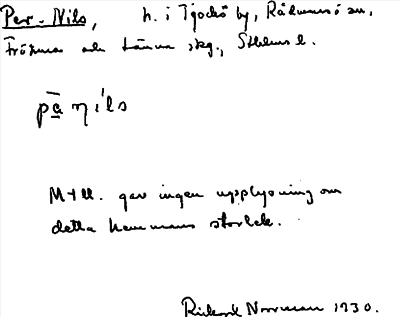 Per-Nils, h. i Tjockö by, Rådmansö sn,
Frötuna och Länna skg., Sthlms l.
pa̱̅ ηi´ls
M+ll. gav ingen upplysning om
detta hemmans storlek.
Rickard Norrman 1930.